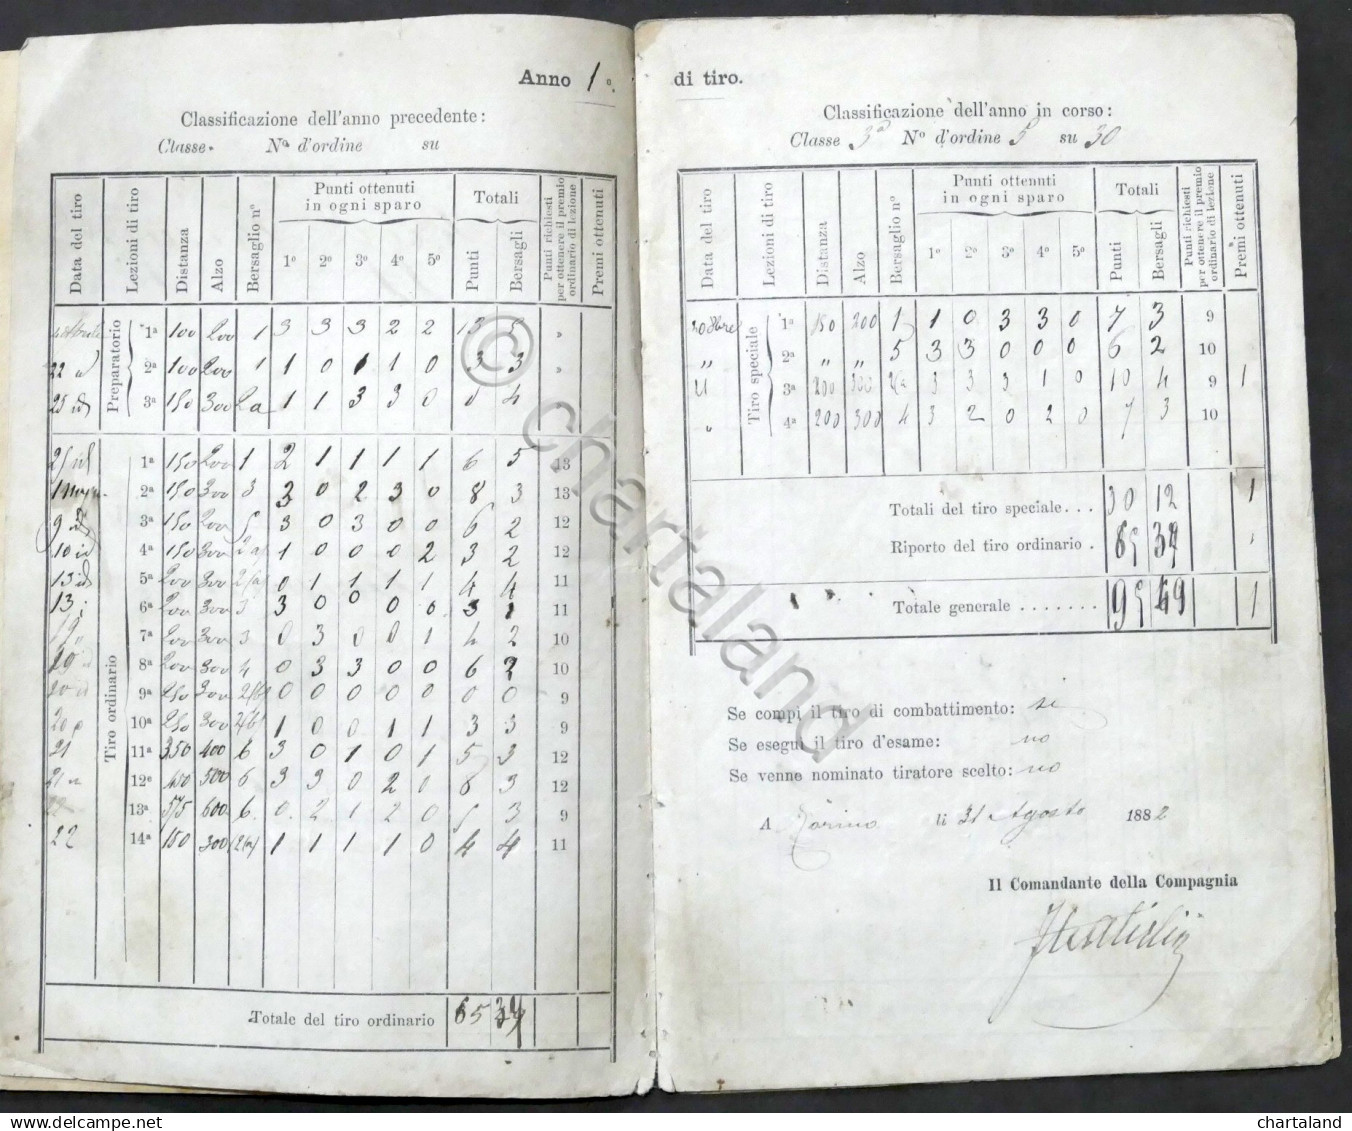 Anno 1º. di tiro.
Classificazione dell'anno precedente:
Classe. Nº d'ordine su
Data del tiro Lezioni di tiro Distanza Alzo Bersaglio nº Punti ottenuti in ogni sparo 1º 2º 3º 4º 5º Totali Punti Bersagli Punti richiesti per ottenere il premio ordinario di lezione Premi ottenuti
Preparatorio
1ª 100 200 1 3 3 3 2 2 13 5 »
22 id 2ª 100 200 1 1 0 1 1 0 3 3 »
25 id 3ª 150 300 2a 1 1 3 3 0 8 4
Tiro ordinario
25 id 1ª 150 200 1 2 1 1 1 1 6 5 13
2ª 150 300 3 3 0 2 3 0 8 3 13
9 id 3ª 150 200 5 3 0 3 0 0 6 2 12
10 id 4ª 150 300 2a 1 0 0 0 2 3 2 12
13 id 5ª 200 300 2/a 0 1 1 1 1 4 4 11
13 6ª 200 300 3 3 0 0 0 0 3 1 11
19 7ª 200 300 3 0 3 0 0 1 4 2 10
19 8ª 200 300 4 0 3 3 0 0 6 2 10
20 id 9ª 250 300 0 0 0 0 0 0 0 9
20 10ª 250 300 1 0 0 1 1 3 3 9
21 11ª 350 400 6 3 0 1 0 1 5 3 12
21 12ª 450 500 6 3 3 0 2 0 8 3 12
22 13ª 575 600 6 0 2 1 2 0 5 3 9
22 14ª 150 300 (2a) 1 1 1 1 0 4 4 11
Totale del tiro ordinario 65 37
Classificazione dell'anno in corso:
Classe 3ª Nº d'ordine 5 su 30
Data del tiro Lezioni di tiro Distanza Alzo Bersaglio nº Punti ottenuti in ogni sparo 1º 2º 3º 4º 5º Totali Punti Bersagli Punti richiesti per ottenere il premio ordinario di lezione Premi ottenuti
Tiro speciale
20 8bre 1ª 150 200 1 1 0 3 3 0 7 3 9
„ 2ª „ „ 5 3 3 0 0 0 6 2 10
21 3ª 200 300 2/a 3 3 3 1 0 10 4 9 1
„ 4ª 200 300 4 3 2 0 2 0 7 3 10
Totali del tiro speciale . . . 30 12 1
Riporto del tiro ordinario . 65 37
Totale generale . . . . . . . 95 49 1
Se compì il tiro di combattimento: si
Se eseguì il tiro d'esame: no
Se venne nominato tiratore scelto: no
A Torino li 31 Agosto 1882
Il Comandante della Compagnia
© chartaland
chartaland
www.delcampe.net